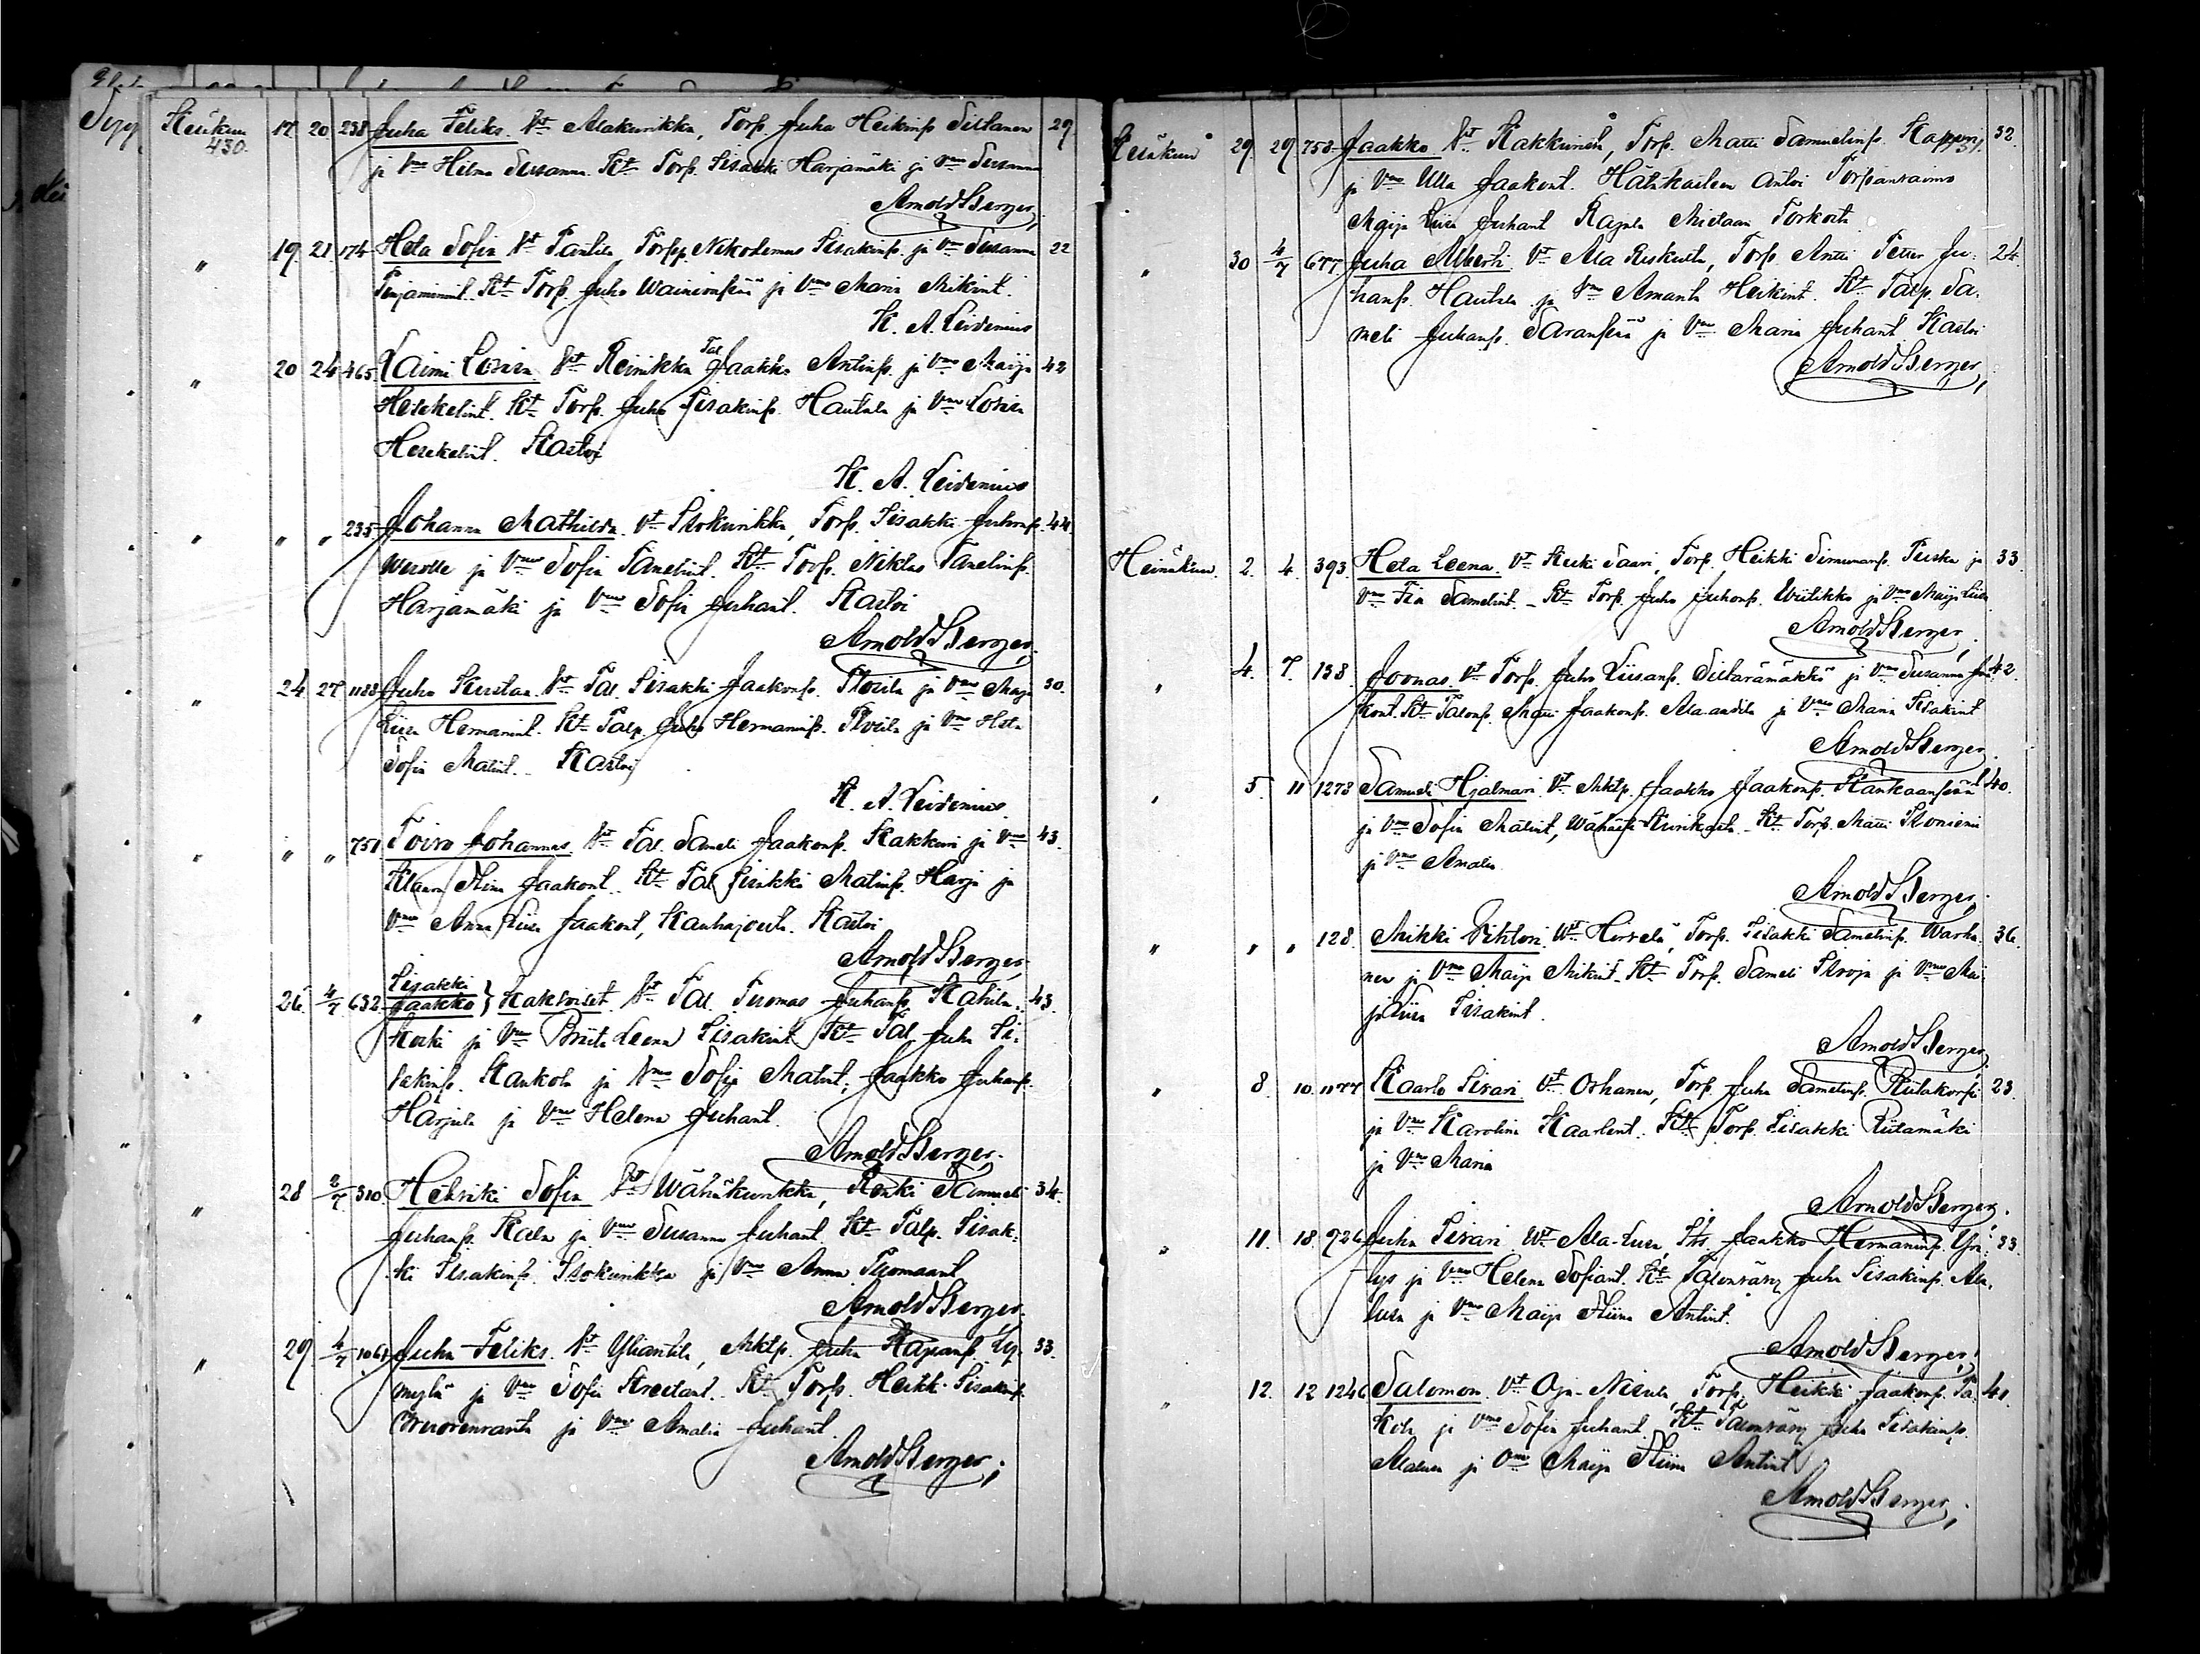 Synt
Kesäkuu 17. 20 238 Juha Feliks. Vt Alakurikka, Torp. Juha Heikinp. Siltanen 29
430.
ja Vmo Hilma Susanna. Kt Torp. Iisakki Harjamäki ja Vmo Susanna
Arnold Berger,
" 19. 21. 174 Heta Sofia Vt Panttila Torp. Nikodemus Iisakinp. ja Vmo Susanna 22
Penjamint. Kt Torp. Juho Wainionpää ja Vmo Maria Mikint.
K. A. Leidenius
" 20 24 465 Laimi Lovisa Vt Reinikka Tal Jaakko Antinp. ja Vmo Maija 42
Hesekelint. Kt Torp. Juho Iisakinp. Hautala ja Vmo Lovisa
Hesekelint. Kastoi
K. A. Leidenius
" " " 235 Johanna Mathilda. Vt Isokurikka, Torp. Iisakki Juhonp. 44
ja Vmo Sofia Samelint. Kt Torp. Niklas Samelinp.
Harjamäki ja Vmo Sofia Juhant. Kastoi
Arnold Berger,
" 24. 27 1183 Juho Kustaa. Vt Tal. Iisakki Jaakonp. ja Vmo Maija 30.
Liisa Hermanint. Kt Talp. Juho Hermaninp. ja Vmo Heta
Sofia Matint. Kastoi
K. A. Leidenius.
" " " 751 Toivo Johannes. Vt Tal. Sameli Jaakonp. Kakkuri ja Vmo 43.
Klaara Miina Jaakont. Kt Tal Iisakki Matinp. Harja ja
Vmo Anna Liisa Jaakont, Kauhajoelta. Kastoi
Arnold Berger,
Iisakki
" 26. 4/7 632. Jaakko } Kaksoiset. Vt Tal. Tuomas Juhanp. 43.
Koski ja Vmo Briita Leena Iisakint. Kt Tal. Juha Ii-
sakinp. Kankola ja Vmo Sofia Matint. Jaakko Juhanp.
Harjula ja Vmo Helena Juhant.
Arnold Berger.
" 28 2/7 310. Hendriki Sofia Vt Wähäkurikka, Renki Samueli 34.
Juhanp. Kala ja Vmo Susanna Juhant. Kt Talp. Iisak-
ki Iisakinp. Isokurikka ja Vmo Anna Tuomaant
Arnold Berger.
" 29 4/7 1061 Juha Feliks. Vt Yliantila, Mktp. Juha 33.
ja Vmo Sofia Kt Torp. Heikk. Iisakinp.
Wuorenranta ja Vmo Amalia Juhant.
Arnold Berger,
Kesäkuu 29. 29 758 Jaakko Vt Kakkurista, Torp. Matti Samuelinp. 32.
ja Vmo Ulla Jaakont. Hätäkasteen antoi Torpanvaimo
Maija Liisa Juhant Rajala Mietaan Torkosta
" 30 4/7 677 Juha Alberti Vt Ala Ruskulta, Torp. Antti Petter Ju- 24.
hanp. Hautala ja Vmo Amanta Heikint. Kt Talp. Sa-
meli Juhanp. Saranpää ja Vmo Maria Juhant Kastoi
Arnold Berger,
Heinäkuu. 2. 4. 393. Heta Leena. Vt Keski Saari, Torp. Heikki Simunanp. Puska ja 33
Vmo Fia Samelint. Kt Torp. Juho Juhonp. Wiitikko ja Vmo Maija Liisa
Arnold Berger,
" 4. 7. 138. Joonas. Vt Torp. Juho Liisanp. Siltarämäkkö ja Vmo Susanna Jaa- 42.
kont. Kt Talonp. Matti Jaakonp. Ala-anttila ja Vmo Maria Iisakint
Arnold Berger,
" 5. 11 1273 Samueli Hjalmari. Vt Mktp. Jaakko Jaakonp. Kankaanpää 40.
ja Vmo Sofia Matint, Kt Torp. Matti Isoniemi
ja Vmo Amalia
Arnold Berger,
" " " 128. Mikki Viktori Vt Hirvelä, Torp. Iisakki Samelinp. Warha- 36.
nen ja Vmo Maija Mikint. Kt Torp. Sameli Iisoja ja Vmo Mai-
ja Liisa Iisakint.
Arnold Berger,
" 8. 10. 1177 Kaarlo Iivari Vt Orhanen, Torp. Juha Samelinp. Riitakorpi 23.
ja Vmo Karolina Kaarlent. Kt Torp. Iisakki Riitamäki
ja Vmo Maria
Arnold Berger.
" 11. 18. 926 Juha Iivari Vt Ala-Luoa, Its. Jaakko Hermaninp. Yri- 33.
lys ja Vmo Helena Sofiant. Kt Talonväry Juha Iisakinp. Ala-
luoa ja Vmo Maija Miina Antint.
Arnold Berger,
" 12. 12 1246 Salomon. Vt Oja-Nisula, Torp. Heikki Jaakonp. Ja- 41.
ja Vmo Sofia Juhant. Kt Talonväry Juha Iisakinp.
Alaluoa ja Vmo Maija Miina Antint
Arnold Berger,